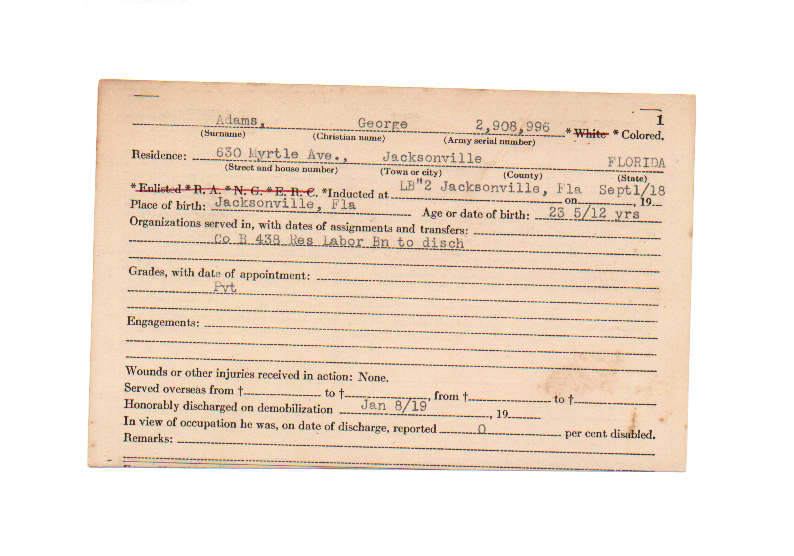 1
Adams, George 2,908,996 * White * Colored.
(Surname) (Christian name) (Army serial number)
Residence: 630 Myrtle Ave., Jacksonville FLORIDA
(Street and house number) (Town or city) (County) (State)
* Enlisted * R. A. * N. G. * E. R. C. *Inducted at LB"2 Jacksonville, Fla on Sept1/18, 19
Place of birth: Jacksonville, Fla Age or date of birth: 23 5/12 yrs
Organizations served in, with dates of assignments and transfers:
Co B 438 Res Labor Bn to disch
Grades, with date of appointment:
Pvt
Engagements:
Wounds or other injuries received in action: None.
Served overseas from † to †, from † to †
Honorably discharged on demobilization Jan 8/19, 19
In view of occupation he was, on date of discharge, reported 0 per cent disabled.
Remarks: